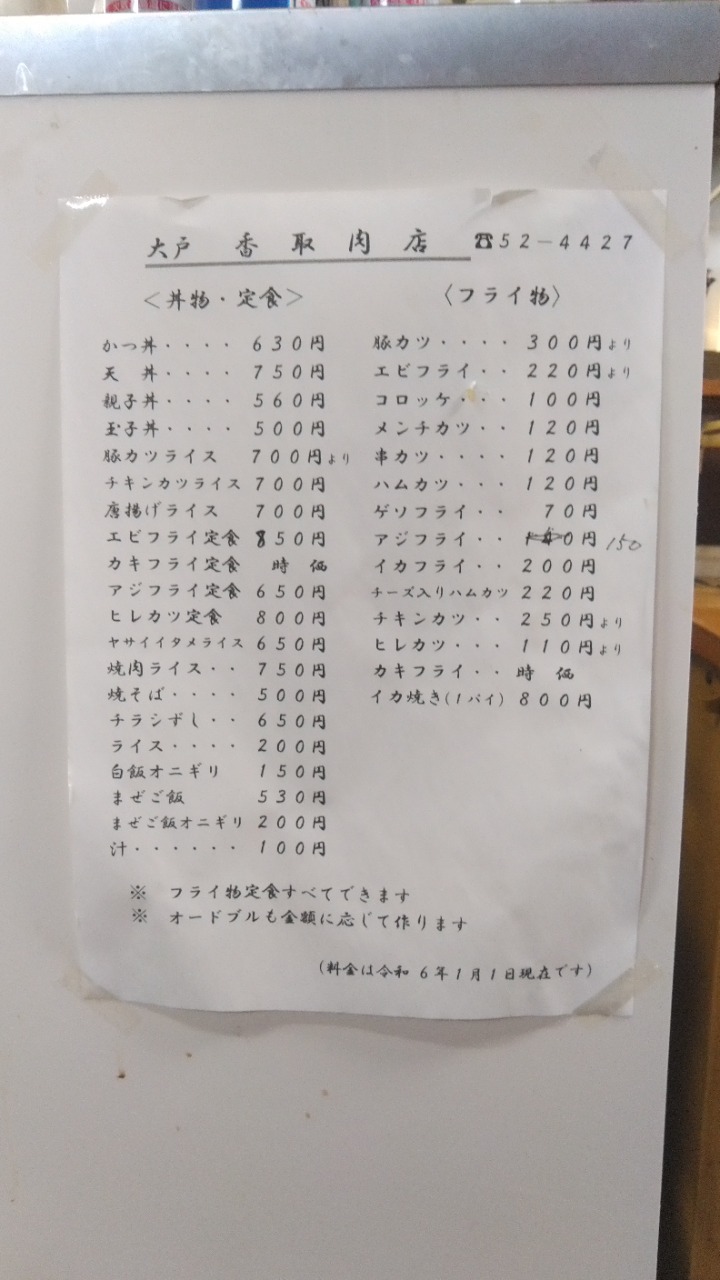 大戸 香取肉店 ☎52-4427
<丼物・定食>
かつ丼・・・・ 630円
天 丼・・・・ 750円
親子丼・・・・ 560円
玉子丼・・・・ 500円
豚カツライス 700円より
チキンカツライス 700円
唐揚げライス 700円
エビフライ定食 850円
カキフライ定食 時 価
アジフライ定食 650円
ヒレカツ定食 800円
ヤサイイタメライス 650円
焼肉ライス・・ 750円
焼そば・・・・ 500円
チラシずし・・ 650円
ライス・・・・ 200円
白飯オニギリ 150円
まぜご飯 530円
まぜご飯オニギリ 200円
汁・・・・・・ 100円
〈フライ物〉
豚カツ・・・・ 300円より
エビフライ・・ 220円より
コロッケ・・・ 100円
メンチカツ・・ 120円
串カツ・・・・ 120円
ハムカツ・・・ 120円
ゲソフライ・・ 70円
アジフライ・・ 円 150
イカフライ・・ 200円
チーズ入りハムカツ 220円
チキンカツ・・ 250円より
ヒレカツ・・・ 110円より
カキフライ・・ 時 価
イカ焼き(1パイ) 800円
※ フライ物定食すべてできます
※ オードブルも金額に応じて作ります
(料金は令和 6年1月1日現在です)